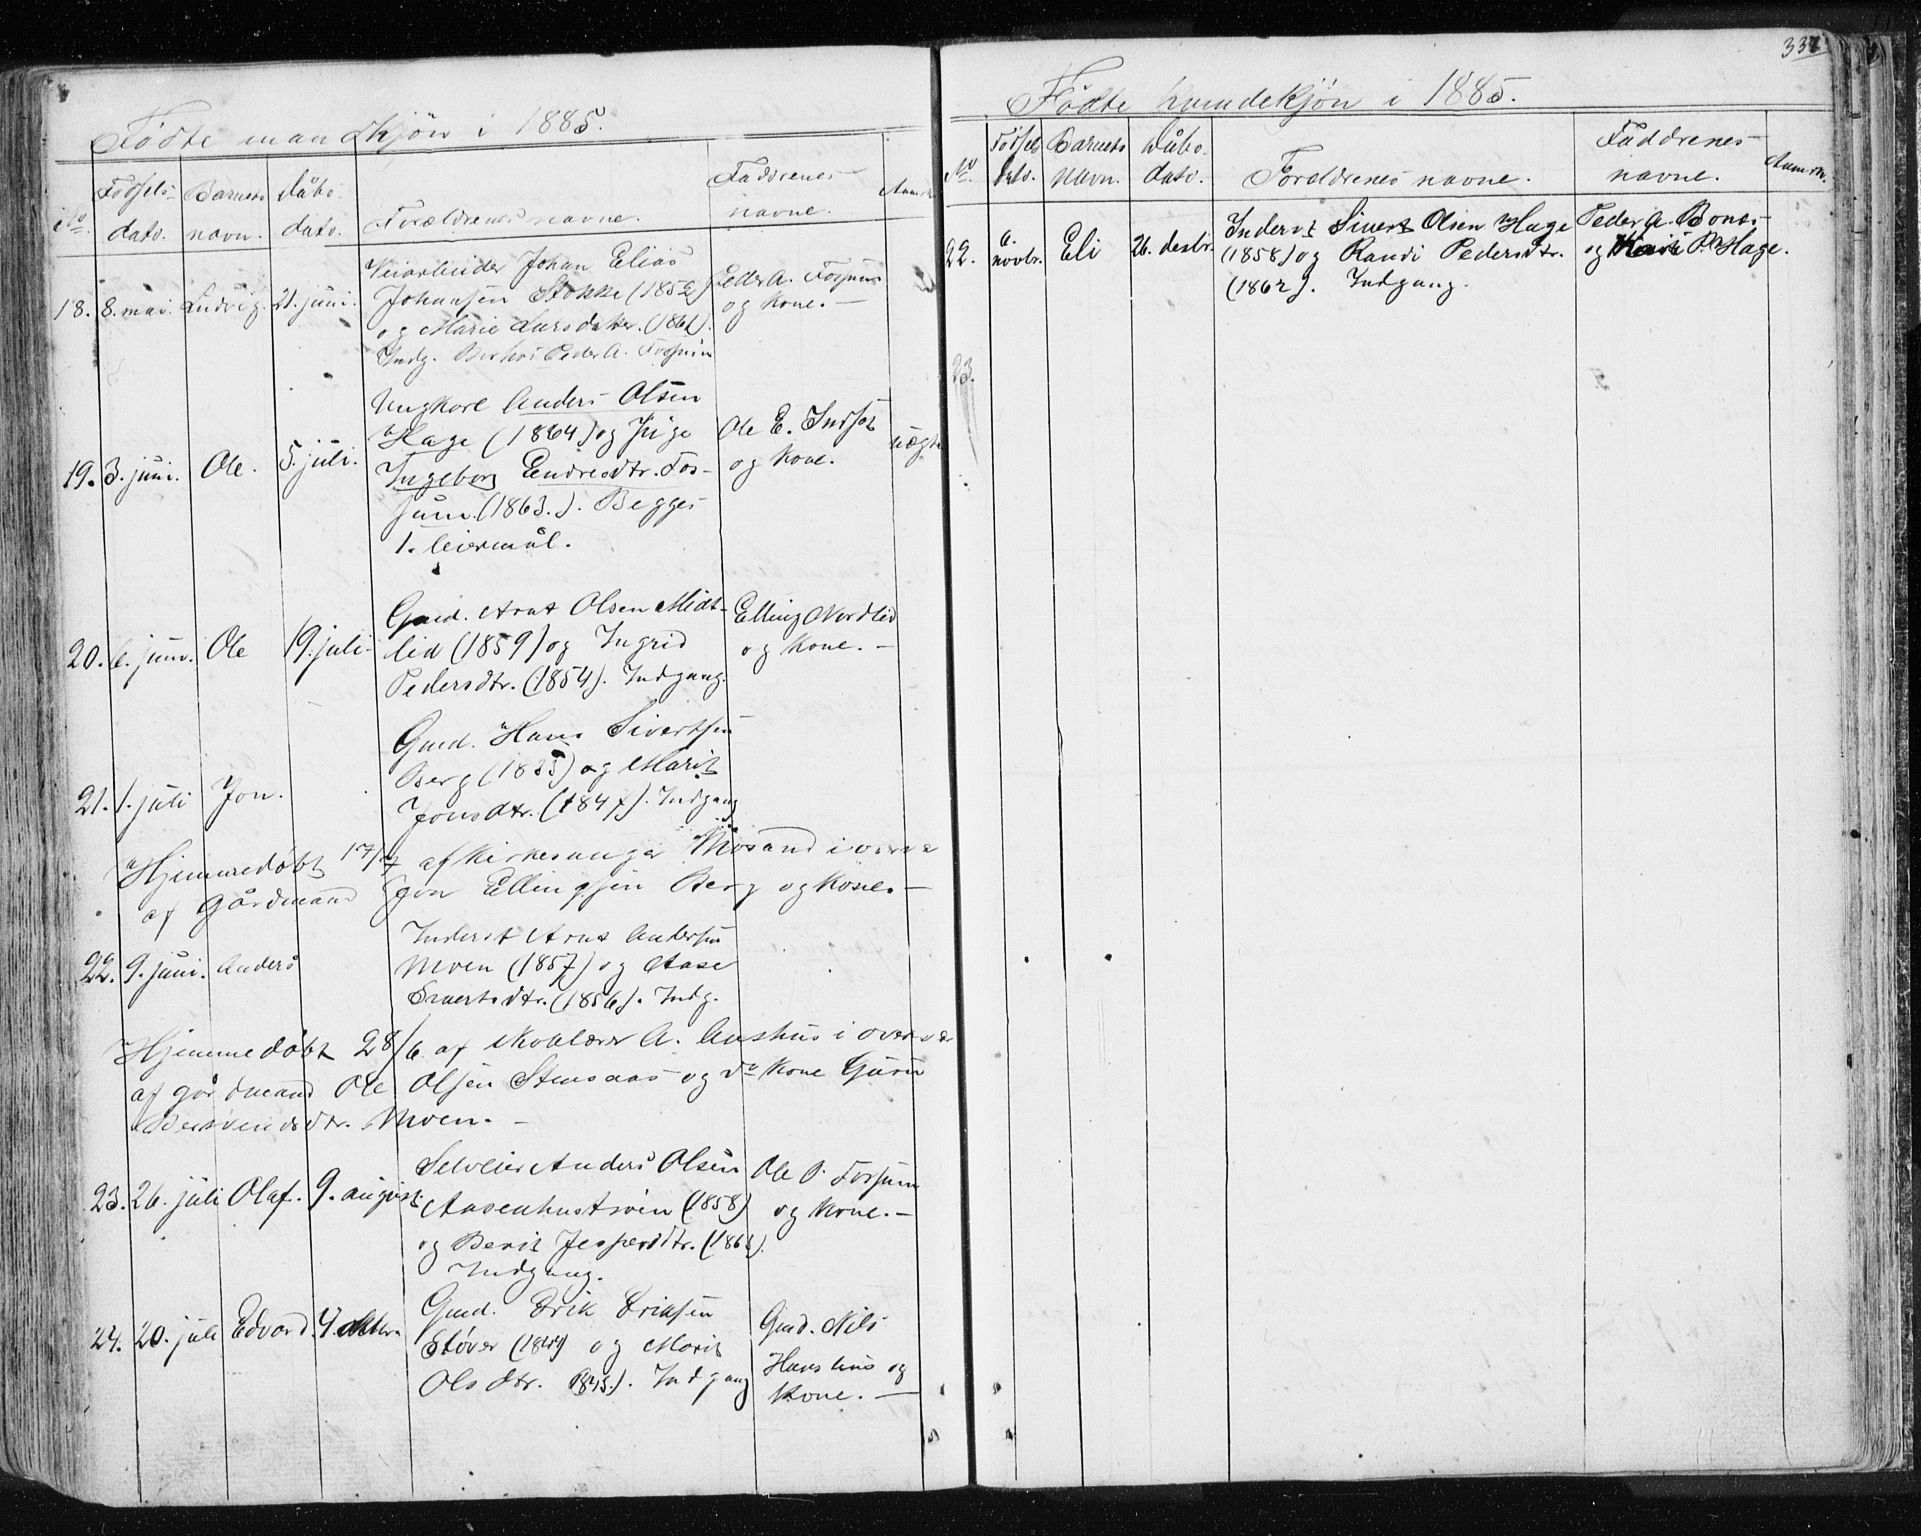 Fødte mandkjøn i 1885.
No. Fødsels- dato. Barnets navn. Dåbs- dato. Forældrenes navne. Faddrenes navne. Anm.
18. 8. mai. Ludvig. 21. juni. Veiarbeider Johan Elias
Johansen Stokke (1852)
og Marie Larsdatter. (1861).
Indg. Peder A. Fossum
Peder A. Fossum
og kone. —
19. 3. juni. Ole. 5. juli. Ungkarl Anders Olsen
Hage (1864) og Pige
Ingeborg Endresdtr. Fos-
sum. (1863.). Begges
1. leiermål.
Ole E. Indset
og kone.
uægte
20. 6. juni. Ole 19. juli. Gmd. Arnt Olsen Midt-
lid (1859) og Ingrid
Pedersdtr. (1854). Indgang.
Elling Nordlid
og kone. —
21. 1. juli Jon. Gmd. Hans Sivertsen
Berg (1835) og Marit
Jonsdtr. (1847). Indgang
Hjemmedøbt 17/7 af kirkesanger Mosand i overvær
af Gårdmand Jon Ellingsen Berg og kone. —
22. 9. juni. Anders Inderst Arnt Andersen
Moen (1857) og Aase
Sivertsdtr. (1856). Indg.
Hjemmedøbt 28/6 af skolelærer A. Aushus i overvær
af gårdmand Ole Olsen Stensaas og do kone Guru
Bersvendsdtr. Moen. —
23. 26. juli Olaf. 9. august. Selveier Anders Olsen
Aasenhustrøen (1858)
og Berit Jespersdtr. (1863).
Indgang.
Ole P. Fossum
og kone. —
24. 20. juli Edvard. 4. oktbr. Gmd. Erik Eriksen
Støver (1844) og Marit
Olsdtr. (1845.). Indgang
Gmd. Nils
Hanshus og
kone. —
337
Fødte kvindekjøn i 1885.
No. Fødsels dato. Barnets navn. Dåbs- dato. Forældrenes navne. Faddrenes navne. Anmrkn.
22. 6. novbr. Eli 26. desbr. Inderst Sivert Olsen Hage
(1858) og Randi Pedersdtr.
(1862). Indgang.
Peder A. Bones
og Marit P. Hage.
23.